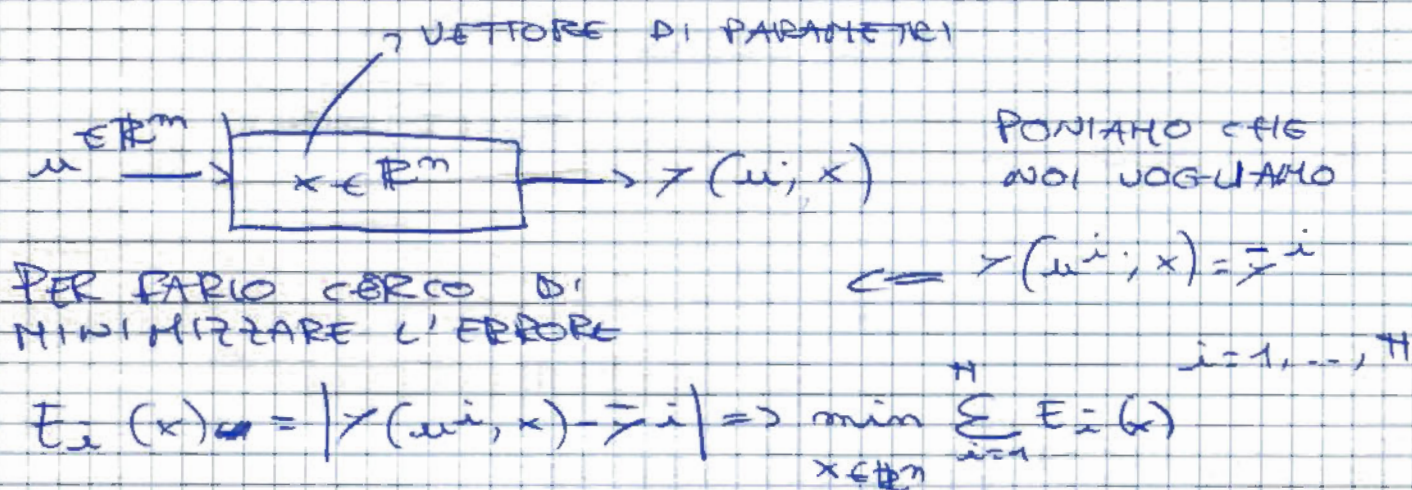 VETTORE DI PARAMETRI
u ∈ ℝᵐ → x ∈ ℝⁿ → y(u; x)
PONIAMO CHE
NOI VOGLIAMO
y(uⁱ; x) = ȳⁱ
i = 1, ..., M
PER FARLO CERCO DI
MINIMIZZARE L'ERRORE
Eᵢ(x) = |y(uⁱ, x) - ȳⁱ| => min x∈ℝⁿ Σ i=1 M Eᵢ(x)